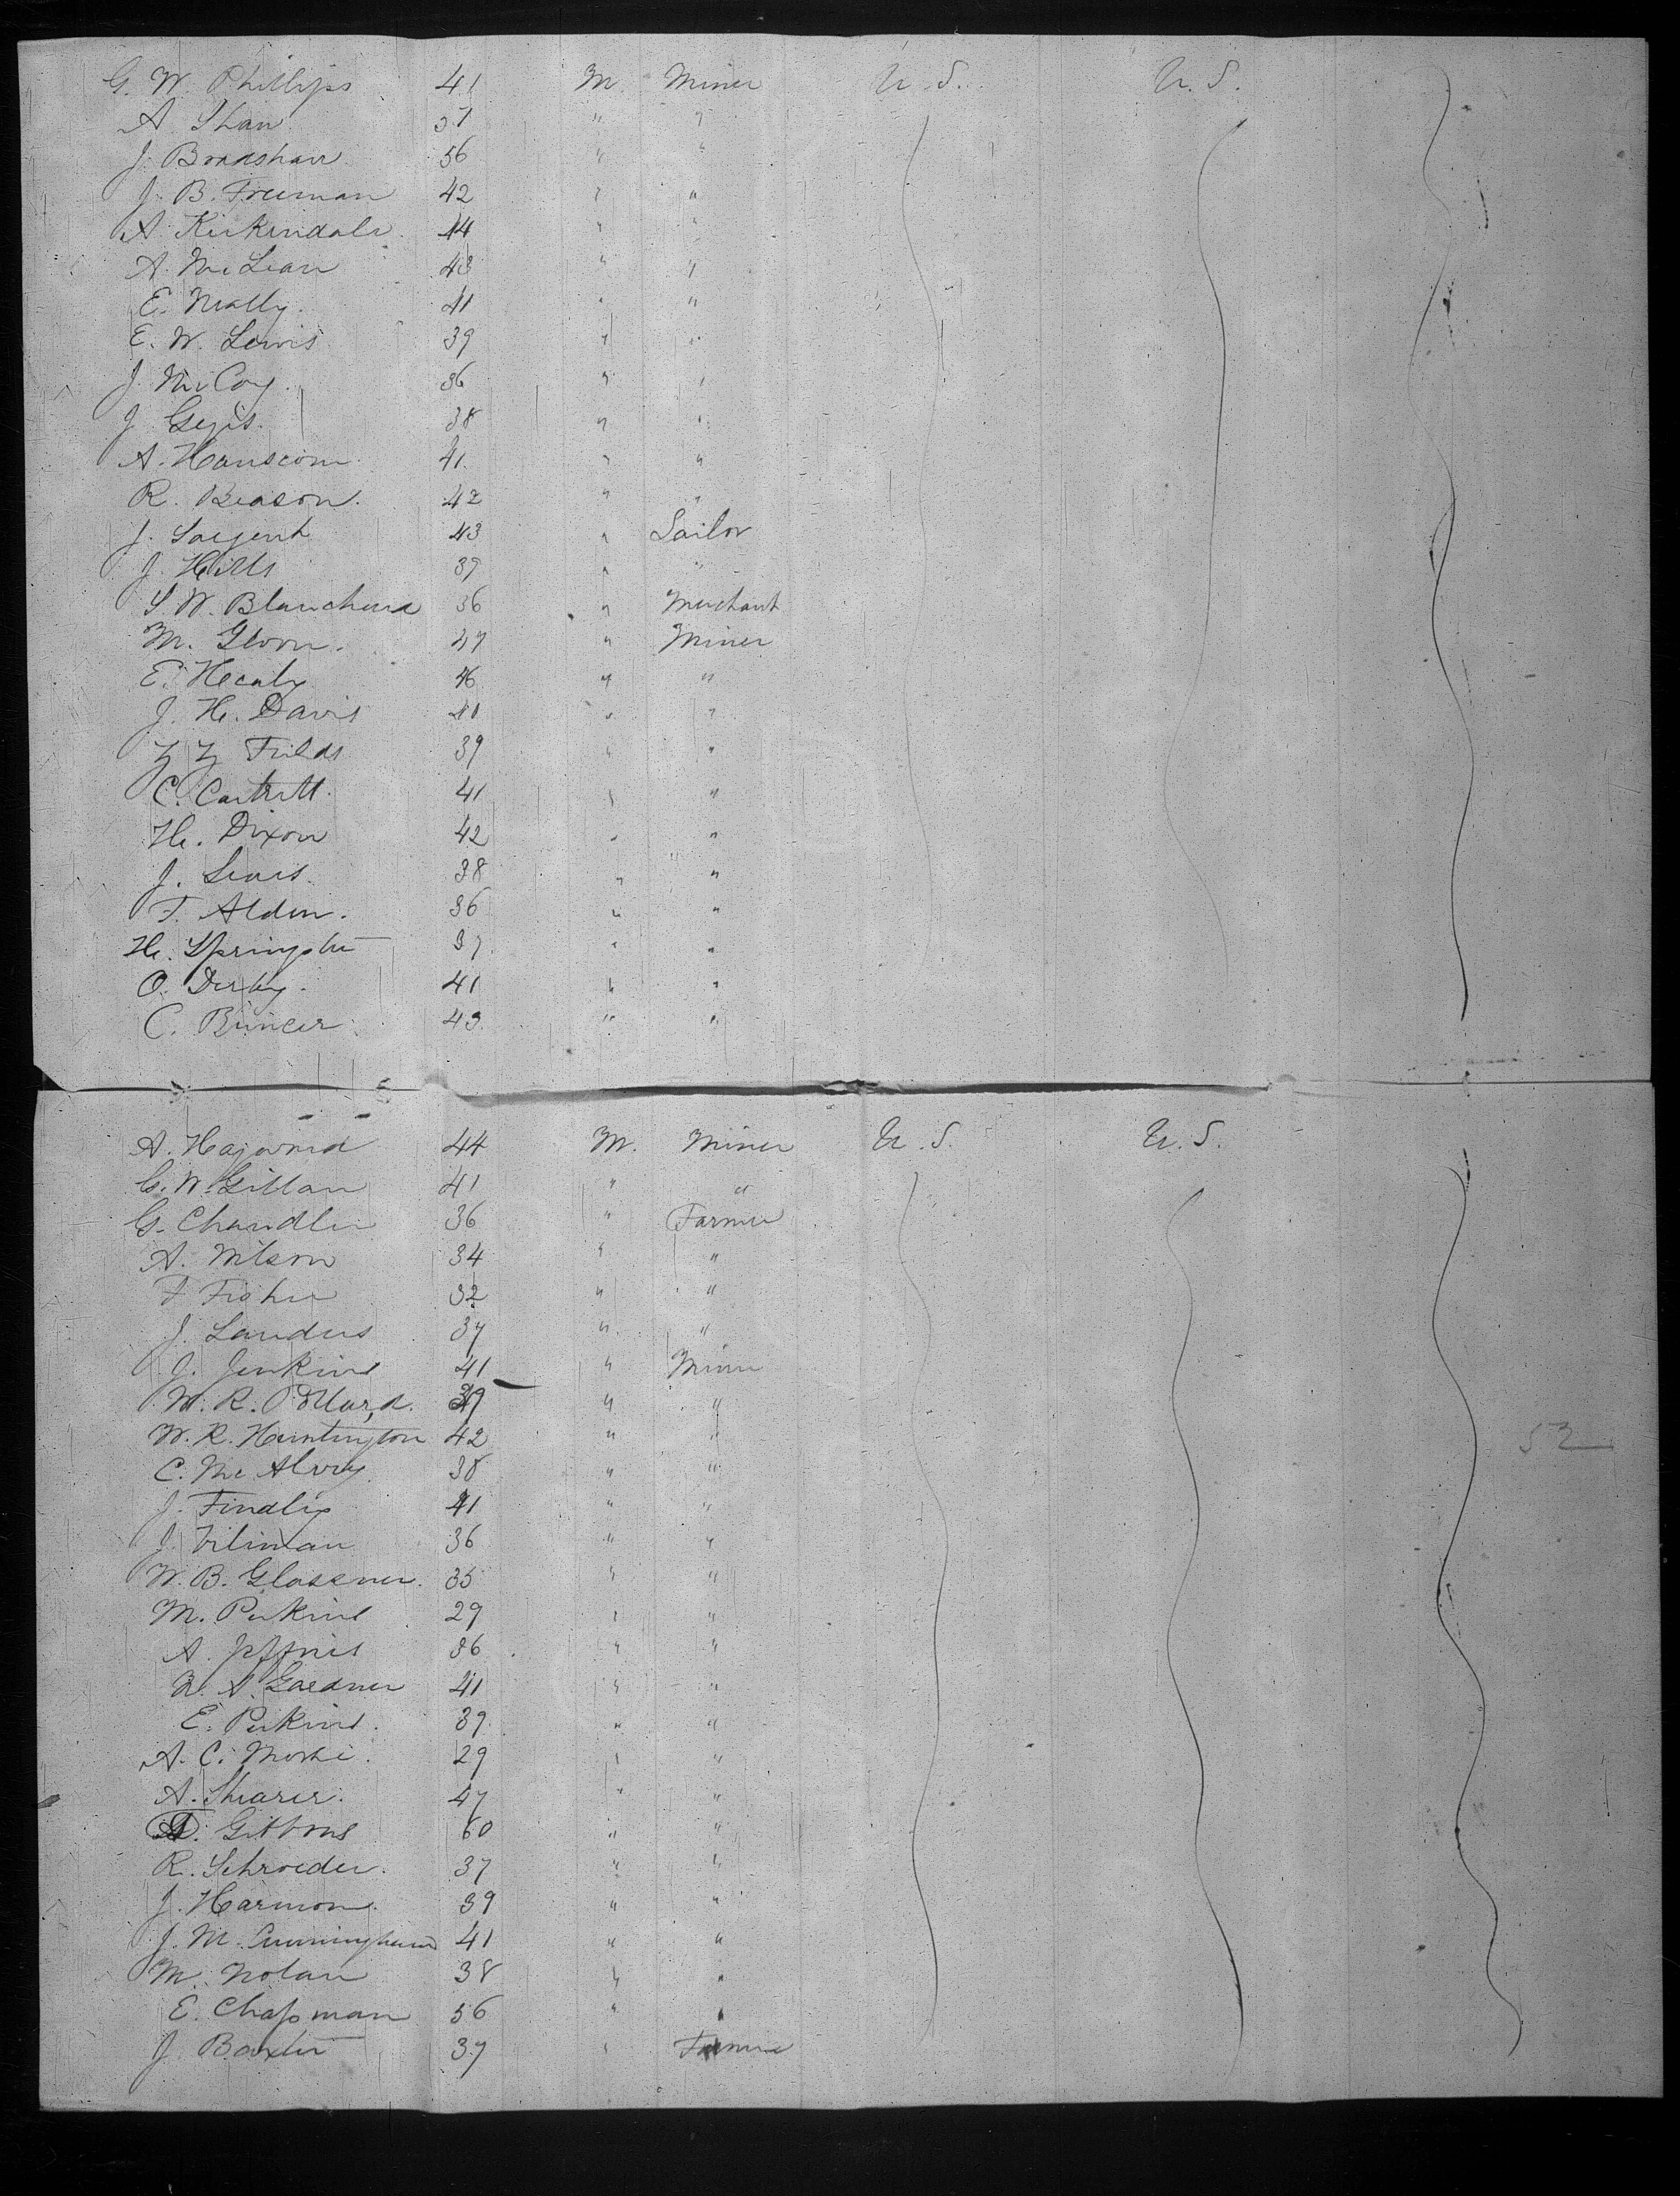 G. W. Phillips 41 M. Miner U. S. U. S.
A. Shaw 37 " "
J. Bradshaw 36 " "
J. B. Freeman 42 " "
A. Kirkindale 44 " "
A. McLean 43 " "
E. Neally 41 " "
E. W. Lewis 39 " "
J. McCoy 36 " "
J. 38 " "
A. Hanscom 41 " "
R. Beason 42 " "
J. Sargent 43 " Sailor
J. Hills 39 " "
S. W. Blanchard 36 " Merchant
M. 47 " Miner
E. Healy 46 " "
J. H. Davis 40 " "
Z Z Fields 39 " "
C. 41 " "
H. Dixon 42 " "
J. 38 " "
F. Alden. 36 " "
H. 37 " "
O. Derby. 41 " "
C. 43 " "
A. Hayward 44 M. Miner U. S. U. S.
G. W. Gillan 41 " "
G. Chandler 36 " Farmer
A. Wilson 34 " "
F Fisher 32 " "
J. Landers 37 " "
J. Jenkins 41 " Miner
W. R. Pollard. 39 " "
W. R. Huntington 42 " "
C. 38 " "
J. Findley 41 " "
J. 36 " "
W. B. Glassner. 35 " "
M. Perkins 29 " "
A. Jeffries 36 " "
A. Gardner 41 " "
E. Perkins. 39 " "
A. C. 29 " "
A. Shearer. 47 " "
Gibbons 60 " "
R. Schroeder. 37 " "
J. Harmon. 39 " "
J. M. Cunningham 41 " "
M. Nolan 38 " "
E. Chapman 36 " "
J. Baxter 37 " Farmer
52